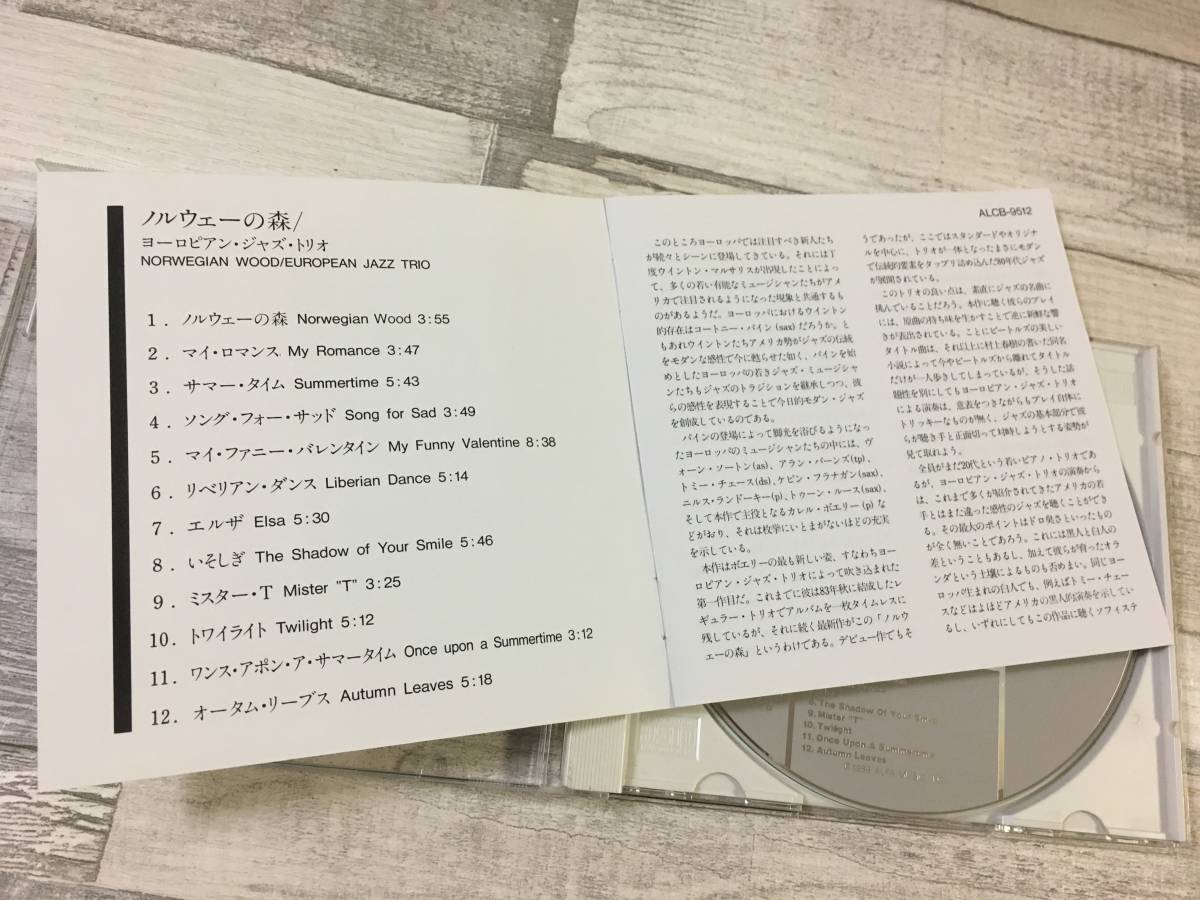 ノルウェーの森/
ヨーロピアン・ジャズ・トリオ
NORWEGIAN WOOD/EUROPEAN JAZZ TRIO
1. ノルウェーの森 Norwegian Wood 3:55
2. マイ・ロマンス My Romance 3:47
3. サマー・タイム Summertime 5:43
4. ソング・フォー・サッド Song for Sad 3:49
5. マイ・ファニー・バレンタイン My Funny Valentine 8:38
6. リベリアン・ダンス Liberian Dance 5:14
7. エルザ Elsa 5:30
8. いそしぎ The Shadow of Your Smile 5:46
9. ミスター・T Mister "T" 3:25
10. トワイライト Twilight 5:12
11. ワンス・アポン・ア・サマータイム Once upon a Summertime 3:12
12. オータム・リーブス Autumn Leaves 5:18
ALCB-9512
このところヨーロッパでは注目すべき新人たち
が続々とシーンに登場してきている。それには丁
度ウイントン・マルサリスが出現したことによっ
て、多くの若い有能なミュージシャンたちがアメ
リカで注目されるようになった現象と共通するも
のがあるようだ。ヨーロッパにおけるウイントン
的存在はコートニー・パイン(sax)だろうか。と
もあれウイントンたちアメリカ勢がジャズの伝統
をモダンな感性で今に甦らせた如く、パインを始
めとしたヨーロッパの若きジャズ・ミュージシャ
ンたちもジャズのトラジションを継承しつつ、彼
らの感性を表現することで今日的モダン・ジャズ
を創成しているのである。
パインの登場によって脚光を浴びるようになっ
たヨーロッパのミュージシャンたちの中には、ヴ
ォーン・ソートン(as)、アラン・バーンズ(tp)、
トミー・チェース(ds)、ケビン・フラナガン(sax)、
ニルス・ランドーキー(p)、トゥーン・ルース(sax)、
そして本作で主役となるカレル・ボエリー(p)な
どがおり、それは枚挙にいとまがないほどの充実
を示している。
本作はボエリーの最も新しい姿、すなわちヨー
ロピアン・ジャズ・トリオによって吹き込まれた
第一作目だ。これまでに彼は83年秋に結成したレ
ギュラー・トリオでアルバムを一枚タイムレスに
残しているが、それに続く最新作がこの「ノルウ
ェーの森」というわけである。デビュー作でもそ
うであったが、ここではスタンダードやオリジナ
ルを中心に、トリオが一体となったまさにモダン
で伝統的要素をタップリ詰め込んだ80年代ジャズ
が展開されている。
このトリオの良い点は、素直にジャズの名曲に
挑んでいることだろう。本作に聴く彼らのプレイ
には、原曲の持ち味を生かすことで逆に新鮮な響
きが表出されている。ことにビートルズの美しい
タイトル曲は、それ以上に村上春樹の書いた同名
小説によって今やビートルズから離れてタイトル
だけが一人歩きしてしまっているが、そうした話
題性を別にしてもヨーロピアン・ジャズ・トリオ
による演奏は、意表をつきながらもプレイ自体に
トリッキーなものが無く、ジャズの基本部分で彼
らが聴き手と正面切って対峙しようとする姿勢が
見て取れよう。
全員がまだ20代という若いピアノ・トリオであ
るが、ヨーロピアン・ジャズ・トリオの演奏から
は、これまで多くが紹介されてきたアメリカの若
手とはまた違った感性のジャズを聴くことができ
る。その最大のポイントはドロ臭さといったもの
が全く無いことであろう。これには黒人と白人の
差ということもあるし、加えて彼らが育ったオラ
ンダという土壌によるものも否めまい。同じヨー
ロッパ生まれの白人でも、例えばトミー・チェー
スなどはよほどアメリカの黒人的演奏を示してい
るし、いずれにしてもこの作品に聴くソフィステ
8. The Shadow Of Your Smile
9. Mister "T"
10. Twilight
11. Once Upon A Summertime
12. Autumn Leaves